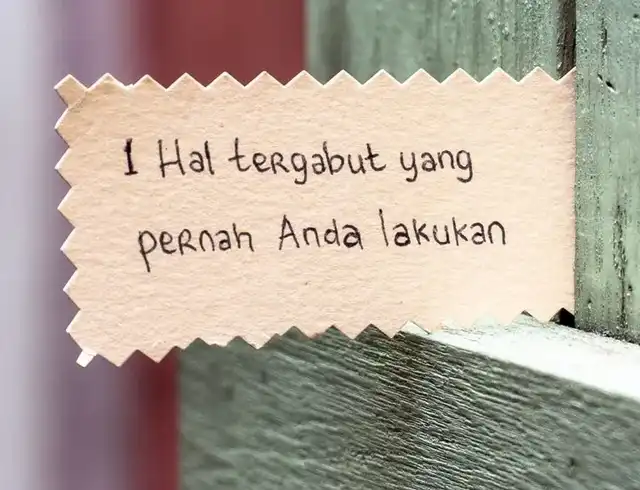 1 Hal tergabut yang
pernah Anda lakukan